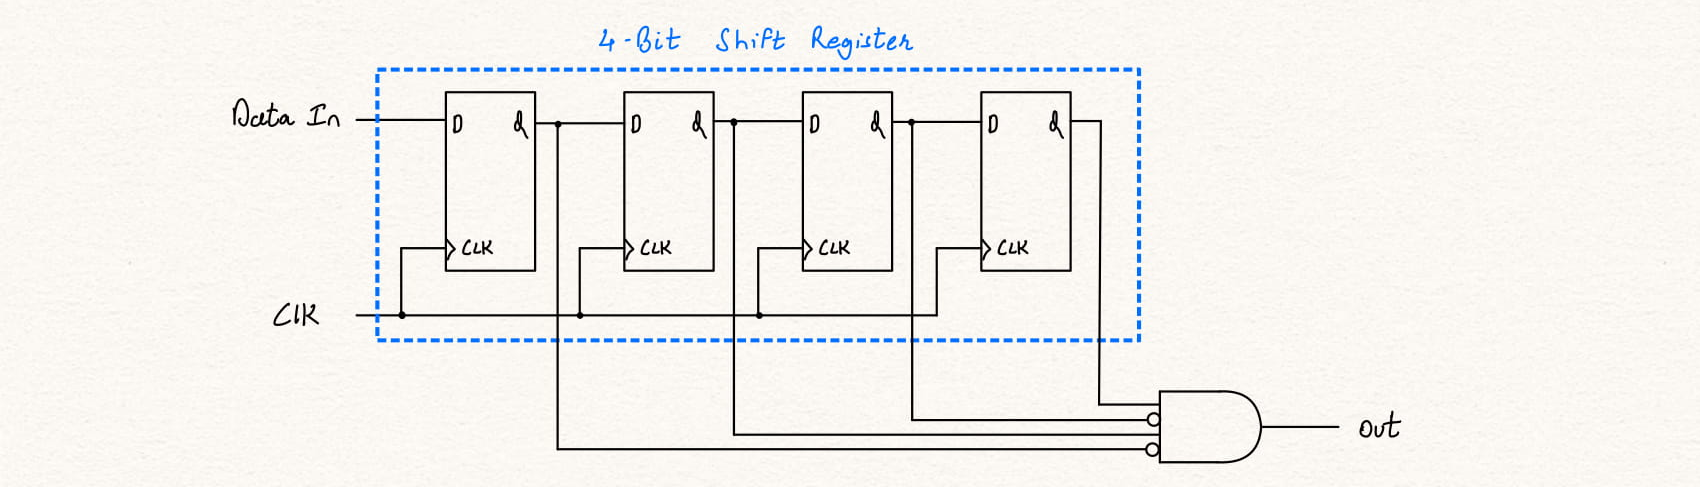 4-Bit Shift Register
Data In
D Q D Q D Q D Q
CLK CLK CLK CLK
Clk
out